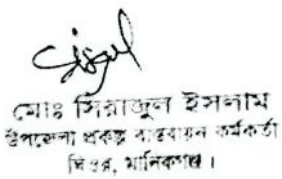 মোঃ সিরাজুল ইসলাম
উপজেলা প্রকল্প বাস্তবায়ন কর্মকর্তা
ঘিওর, মানিকগঞ্জ।